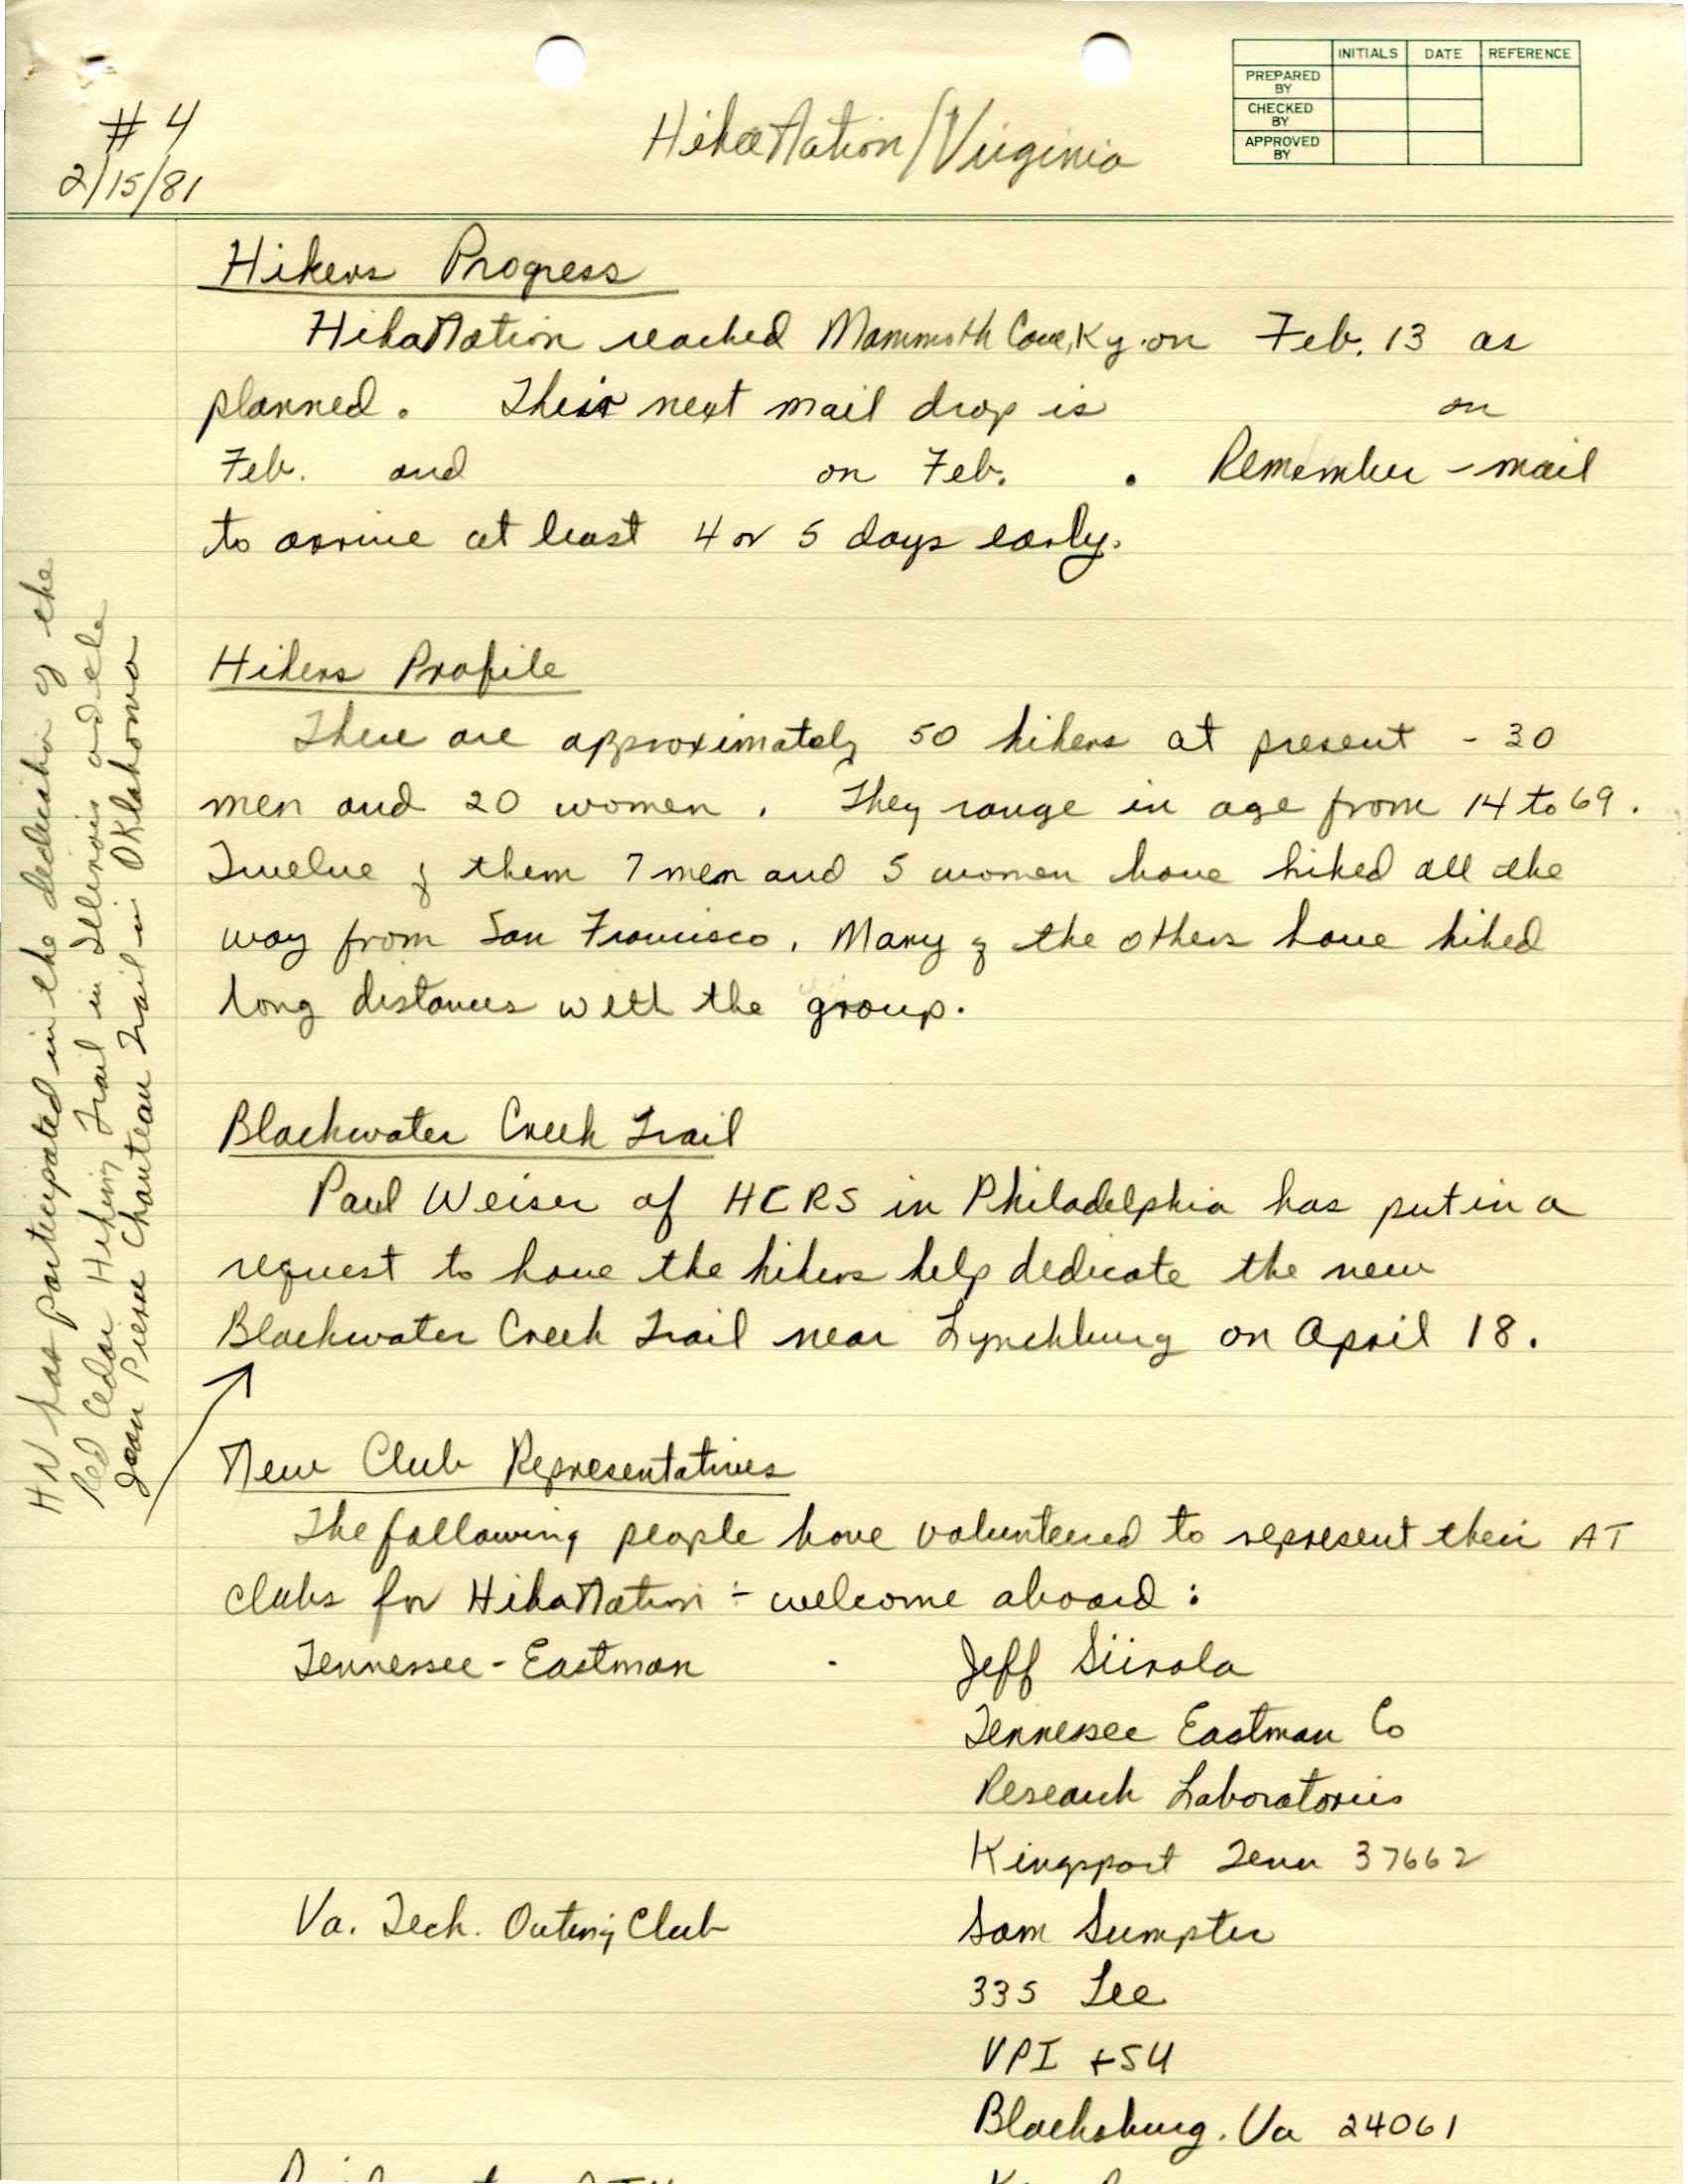 # 4
2/15/81
HikaNation/Virginia
INITIALS DATE REFERENCE
PREPARED BY
CHECKED BY
APPROVED BY
Hikers Progress
HikaNation reached Mammoth Cave, Ky. on Feb. 13 as
planned. Their next mail drop is on
Feb. and on Feb. . Remember - mail
to arrive at least 4 or 5 days early.
Hikers Profile
There are approximately 50 hikers at present - 30
men and 20 women. They range in age from 14 to 69.
Twelve of them 7 men and 5 women have hiked all the
way from San Francisco. Many of the others have hiked
long distances with the group.
Blackwater Creek Trail
Paul Weiser of HCRS in Philadelphia has put in a
request to have the hikers help dedicate the new
Blackwater Creek Trail near Lynchburg on April 18.
HN has participated in the dedication of the
Red Cedar Hiking Trail in Illinois and the
Jean Pierre Chouteau Trail in Oklahoma
New Club Representatives
The following people have volunteered to represent their AT
clubs for HikaNation - welcome aboard:
Tennessee - Eastman - Jeff Siirola
Tennessee Eastman Co
Research Laboratories
Kingsport Tenn 37662
Va. Tech. Outing Club Sam Sumpter
335 Lee
VPI + SU
Blacksburg, Va 24061